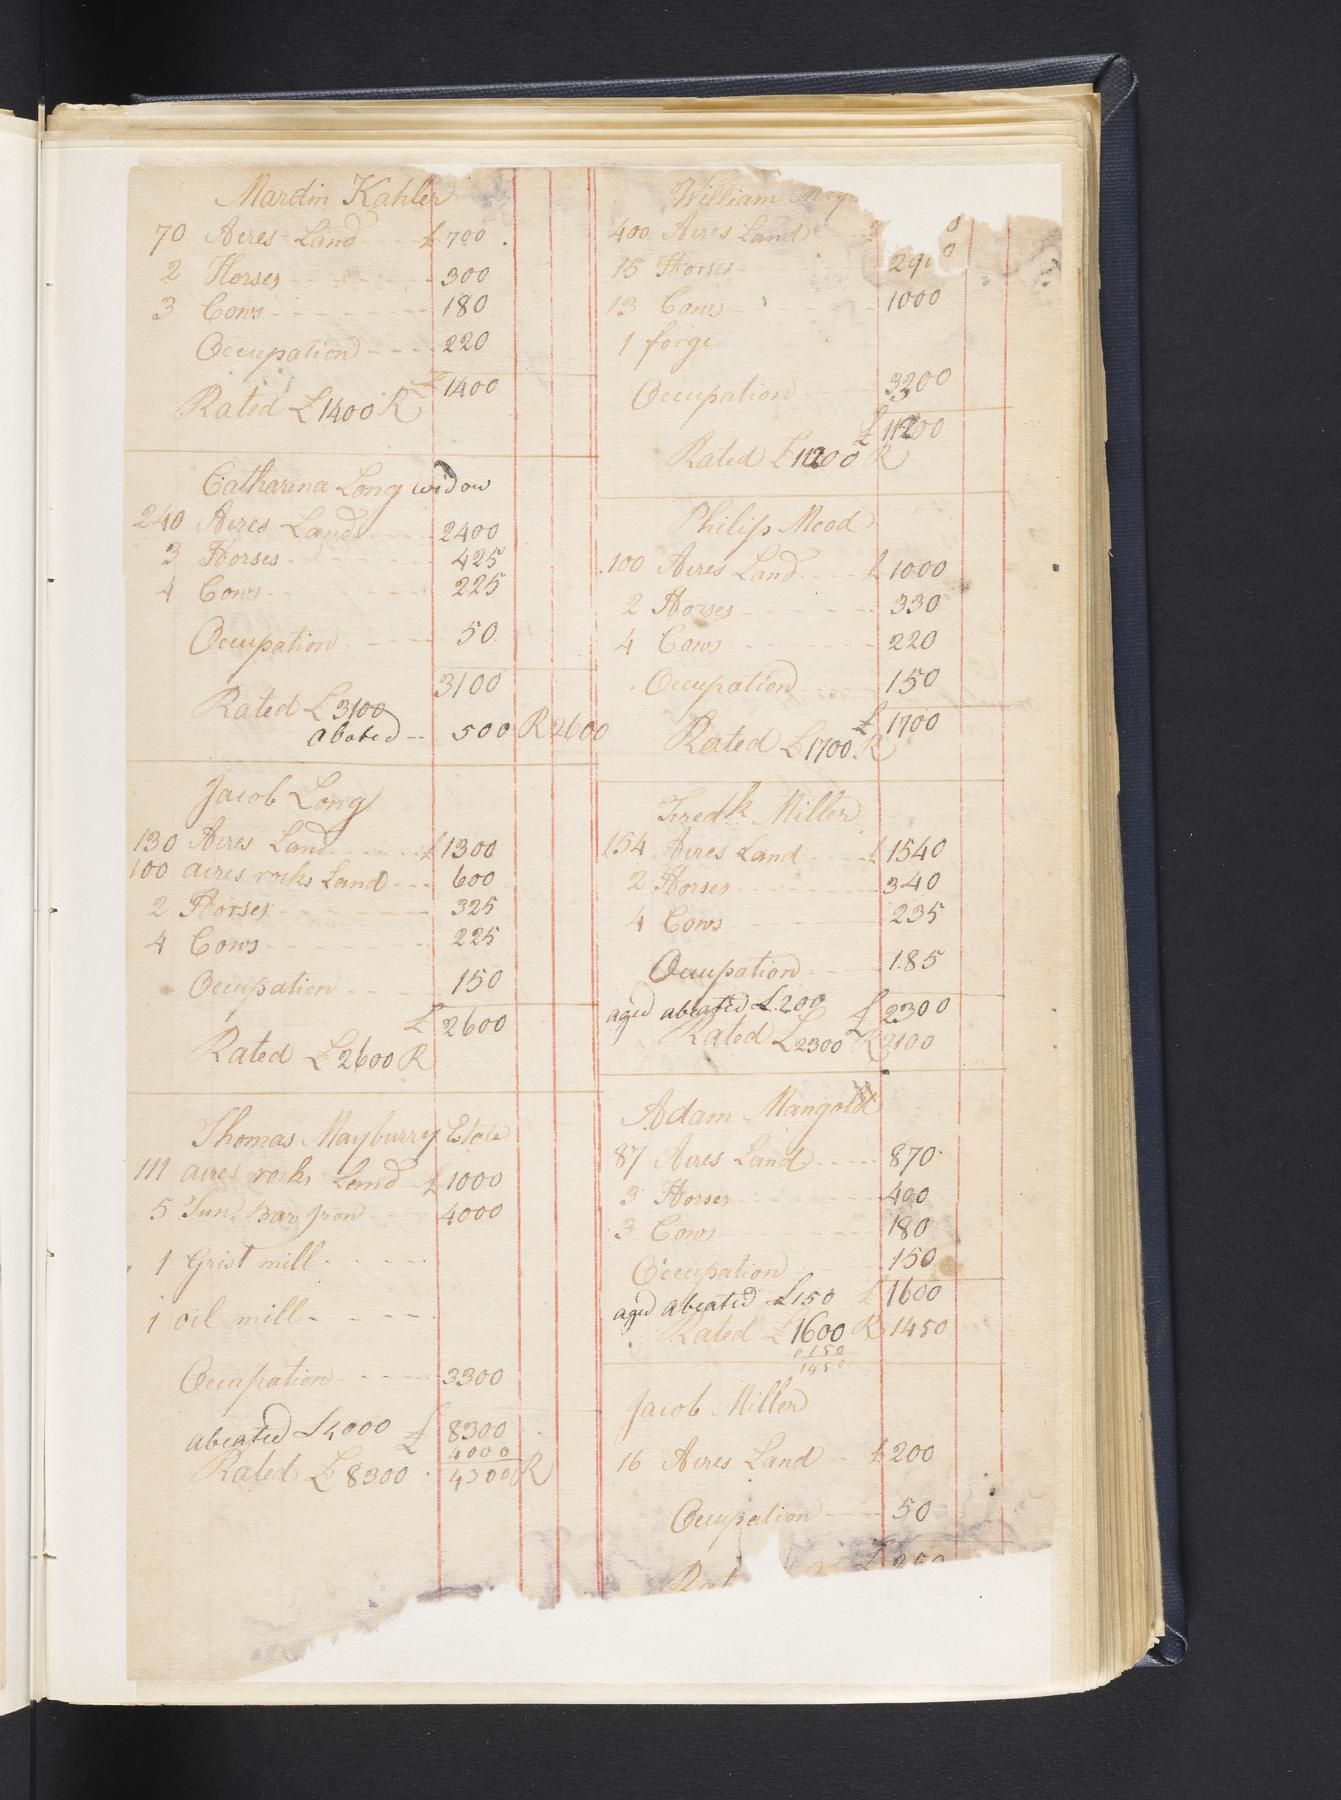 Mardin Kahler
70 Acres Land £ 700
2 Horses 300
3 Cows 180
Occupation 220
£ 1400
Rated £1400 R
Catharina Long widow
240 Acres Land 2400
3 Horses 425
4 Cows 225
Occupation 50
3100
Rated £3100
abated 500 R 2600
Jacob Long
130 Acres Land £ 1300
100 acres rocks Land 600
2 Horses 325
4 Cows 225
Occupation 150
£ 2600
Rated £2600 R
Thomas Mayburry Estate
111 acres rocks Land £ 1000
5 Tun Bar Iron 4000
1 Grist mill
1 oil mill
Occupation 3300
abeated £4000 £ 8300
4000
Rated £ 8300 4300 R
William
400 Acres Land
15 Horses
13 Cows 1000
1 forge
Occupation 3200
£ 11200
Rated £11200 R
Philip Mood
100 Acres Land £ 1000
2 Horses 330
4 Cows 220
Occupation 150
£ 1700
Rated £1700 R
Fredk Miller
154 Acres Land £ 1540
2 Horses 340
4 Cows 235
Occupation 185
aged abeated £200 £ 2300
Rated £2300 R 2100
Adam Mangold
87 Acres Land 870
3 Horses 400
3 Cows 180
Occupation 150
aged abeated £150 £ 1600
Rated £1600 R 1450
150
1450
Jacob Miller
16 Acres Land £ 200
Occupation 50
£ 250